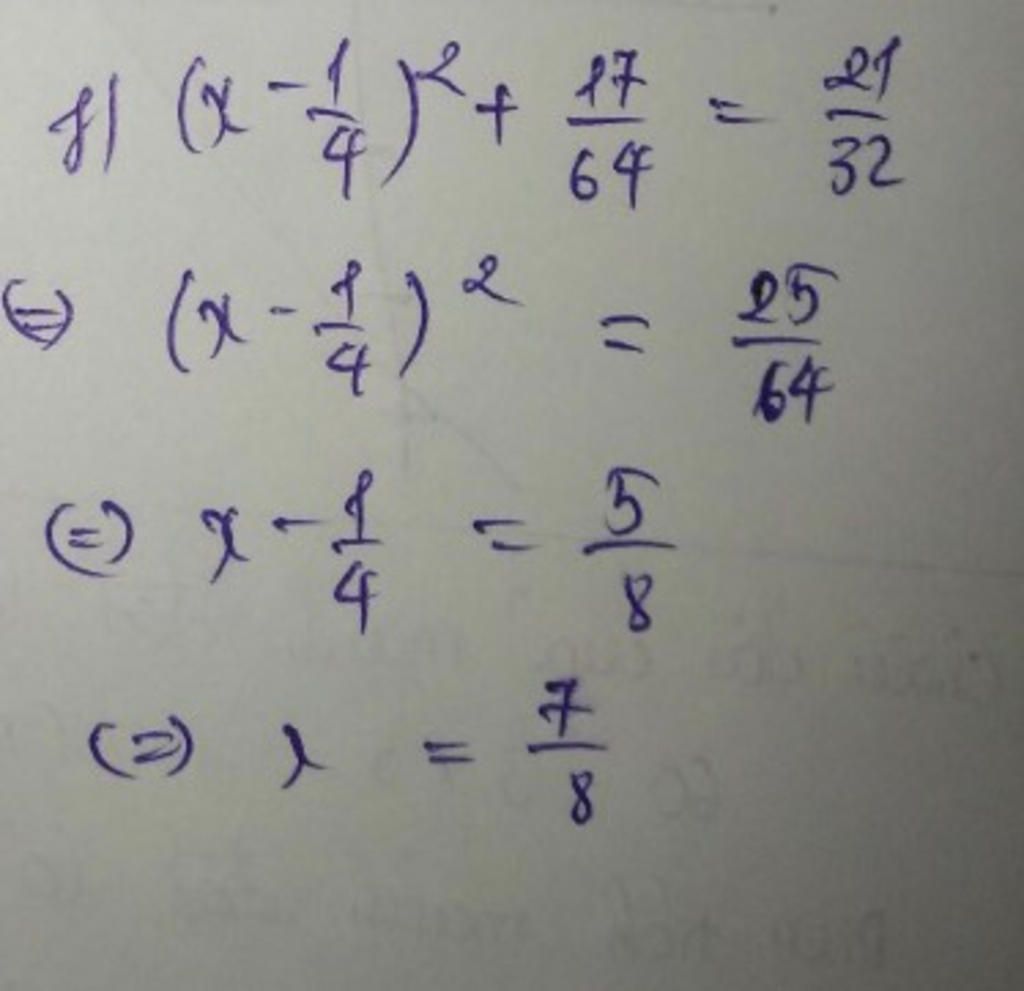 f) (x - 1/4)² + 17/64 = 21/32
(=) (x - 1/4)² = 25/64
(=) x - 1/4 = 5/8
(=) x = 7/8